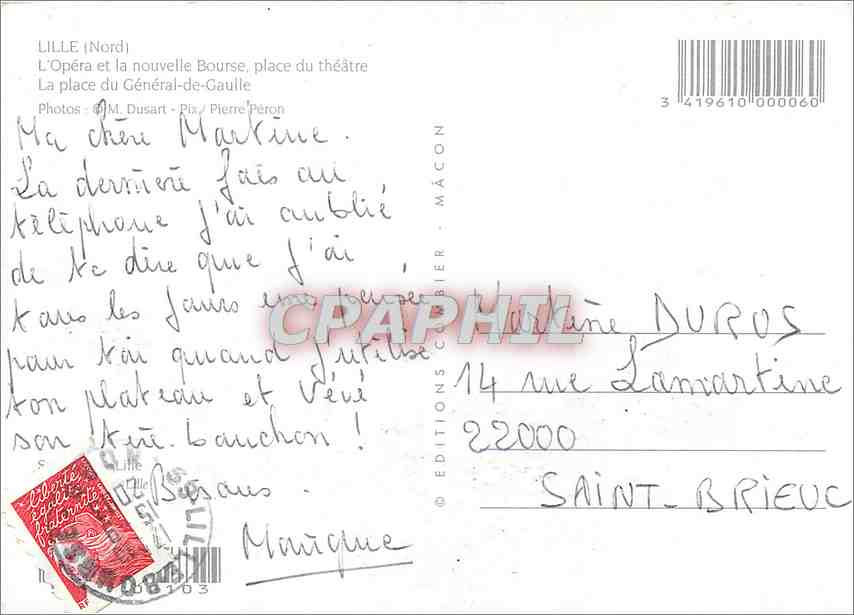 LILLE (Nord)
L'Opéra et la nouvelle Bourse, place du théâtre
La place du Général-de-Gaulle
Photos : © M. Dusart - Pix / Pierre Péron
3 419610 000060
Ma chère Martine.
La dernière fois au
téléphone j'ai oublié
de te dire que j'ai
tous les jours une pensée
pour toi quand j'utilise
ton plateau et Vévé
son tire-bouchon !
Lille
Bisous.
Monique
© EDITIONS COMBIER - MÂCON
CPAPHIL
Martine DUROS
14 rue Lamartine
22000
SAINT-BRIEUC
liberté
égalité
fraternité
RF